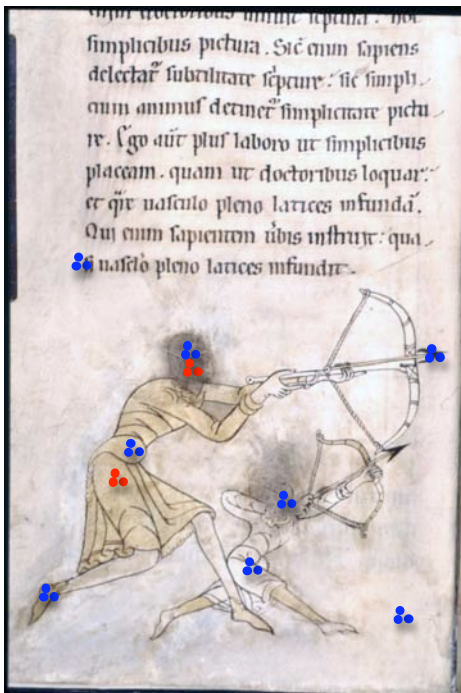 doctoribus innuit scptura. hoc
simplicibus pictura. Sic̄ enim sapiens
delectat᷑ subtilitate sc̄pture: sic simpli-
cium animus detinet᷑ simplicitate pictu-
re. Ego aūt plus laboro ut simplicibus
placeam. quam ut doctoribus loquar:
et q̄si uasculo pleno latices infundā.
Qui enim sapientem ūbis instruit: qua-
si uasclo pleno latices infundit.